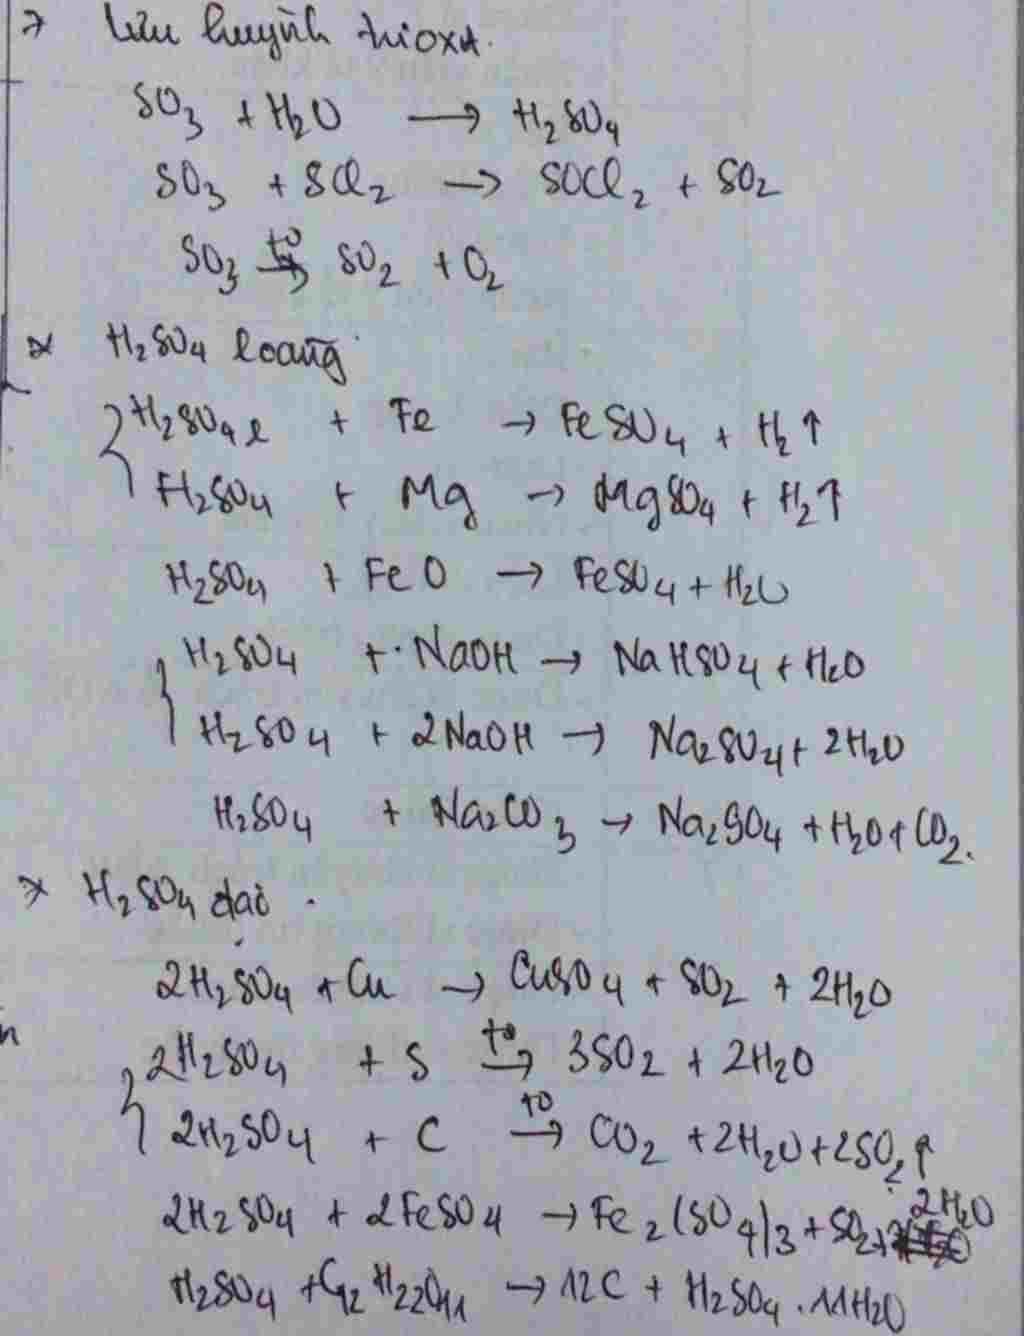 * Lưu huỳnh trioxit.
SO3 + H2O → H2SO4
SO3 + SCl2 → SOCl2 + SO2
SO3 t° → SO2 + O2
* H2SO4 loãng
H2SO4 l + Fe → FeSO4 + H2↑
H2SO4 + Mg → MgSO4 + H2↑
H2SO4 + FeO → FeSO4 + H2O
H2SO4 + NaOH → NaHSO4 + H2O
H2SO4 + 2NaOH → Na2SO4 + 2H2O
H2SO4 + Na2CO3 → Na2SO4 + H2O + CO2.
* H2SO4 đặc.
2H2SO4 + Cu → CuSO4 + SO2 + 2H2O
2H2SO4 + S t° → 3SO2 + 2H2O
2H2SO4 + C t° → CO2 + 2H2O + 2SO2↑
2H2SO4 + 2FeSO4 → Fe2(SO4)3 + SO2 + 2H2O
H2SO4 + C12H22O11 → 12C + H2SO4.11H2O